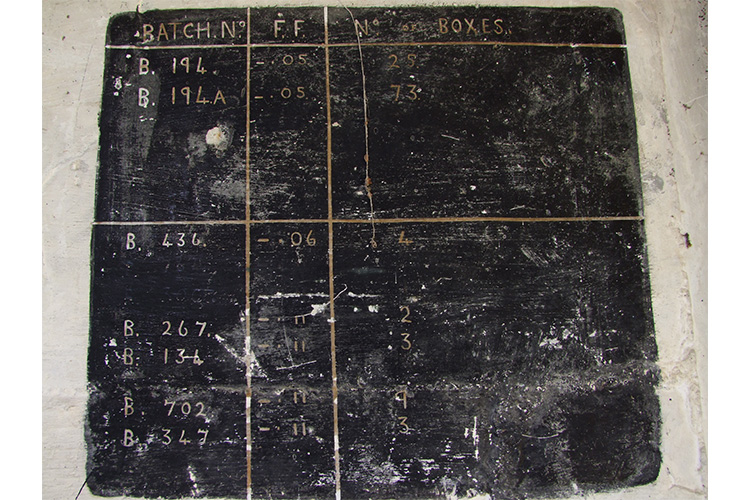 BATCH. Nº F.F Nº OF BOXES.
B. 194. -.05 25
B. 194A -.05 73
B. 436. -.06 4
B. 267. -.11 2
B. 134 -.11 3
B. 702 -.11
B. 347 -.11 3